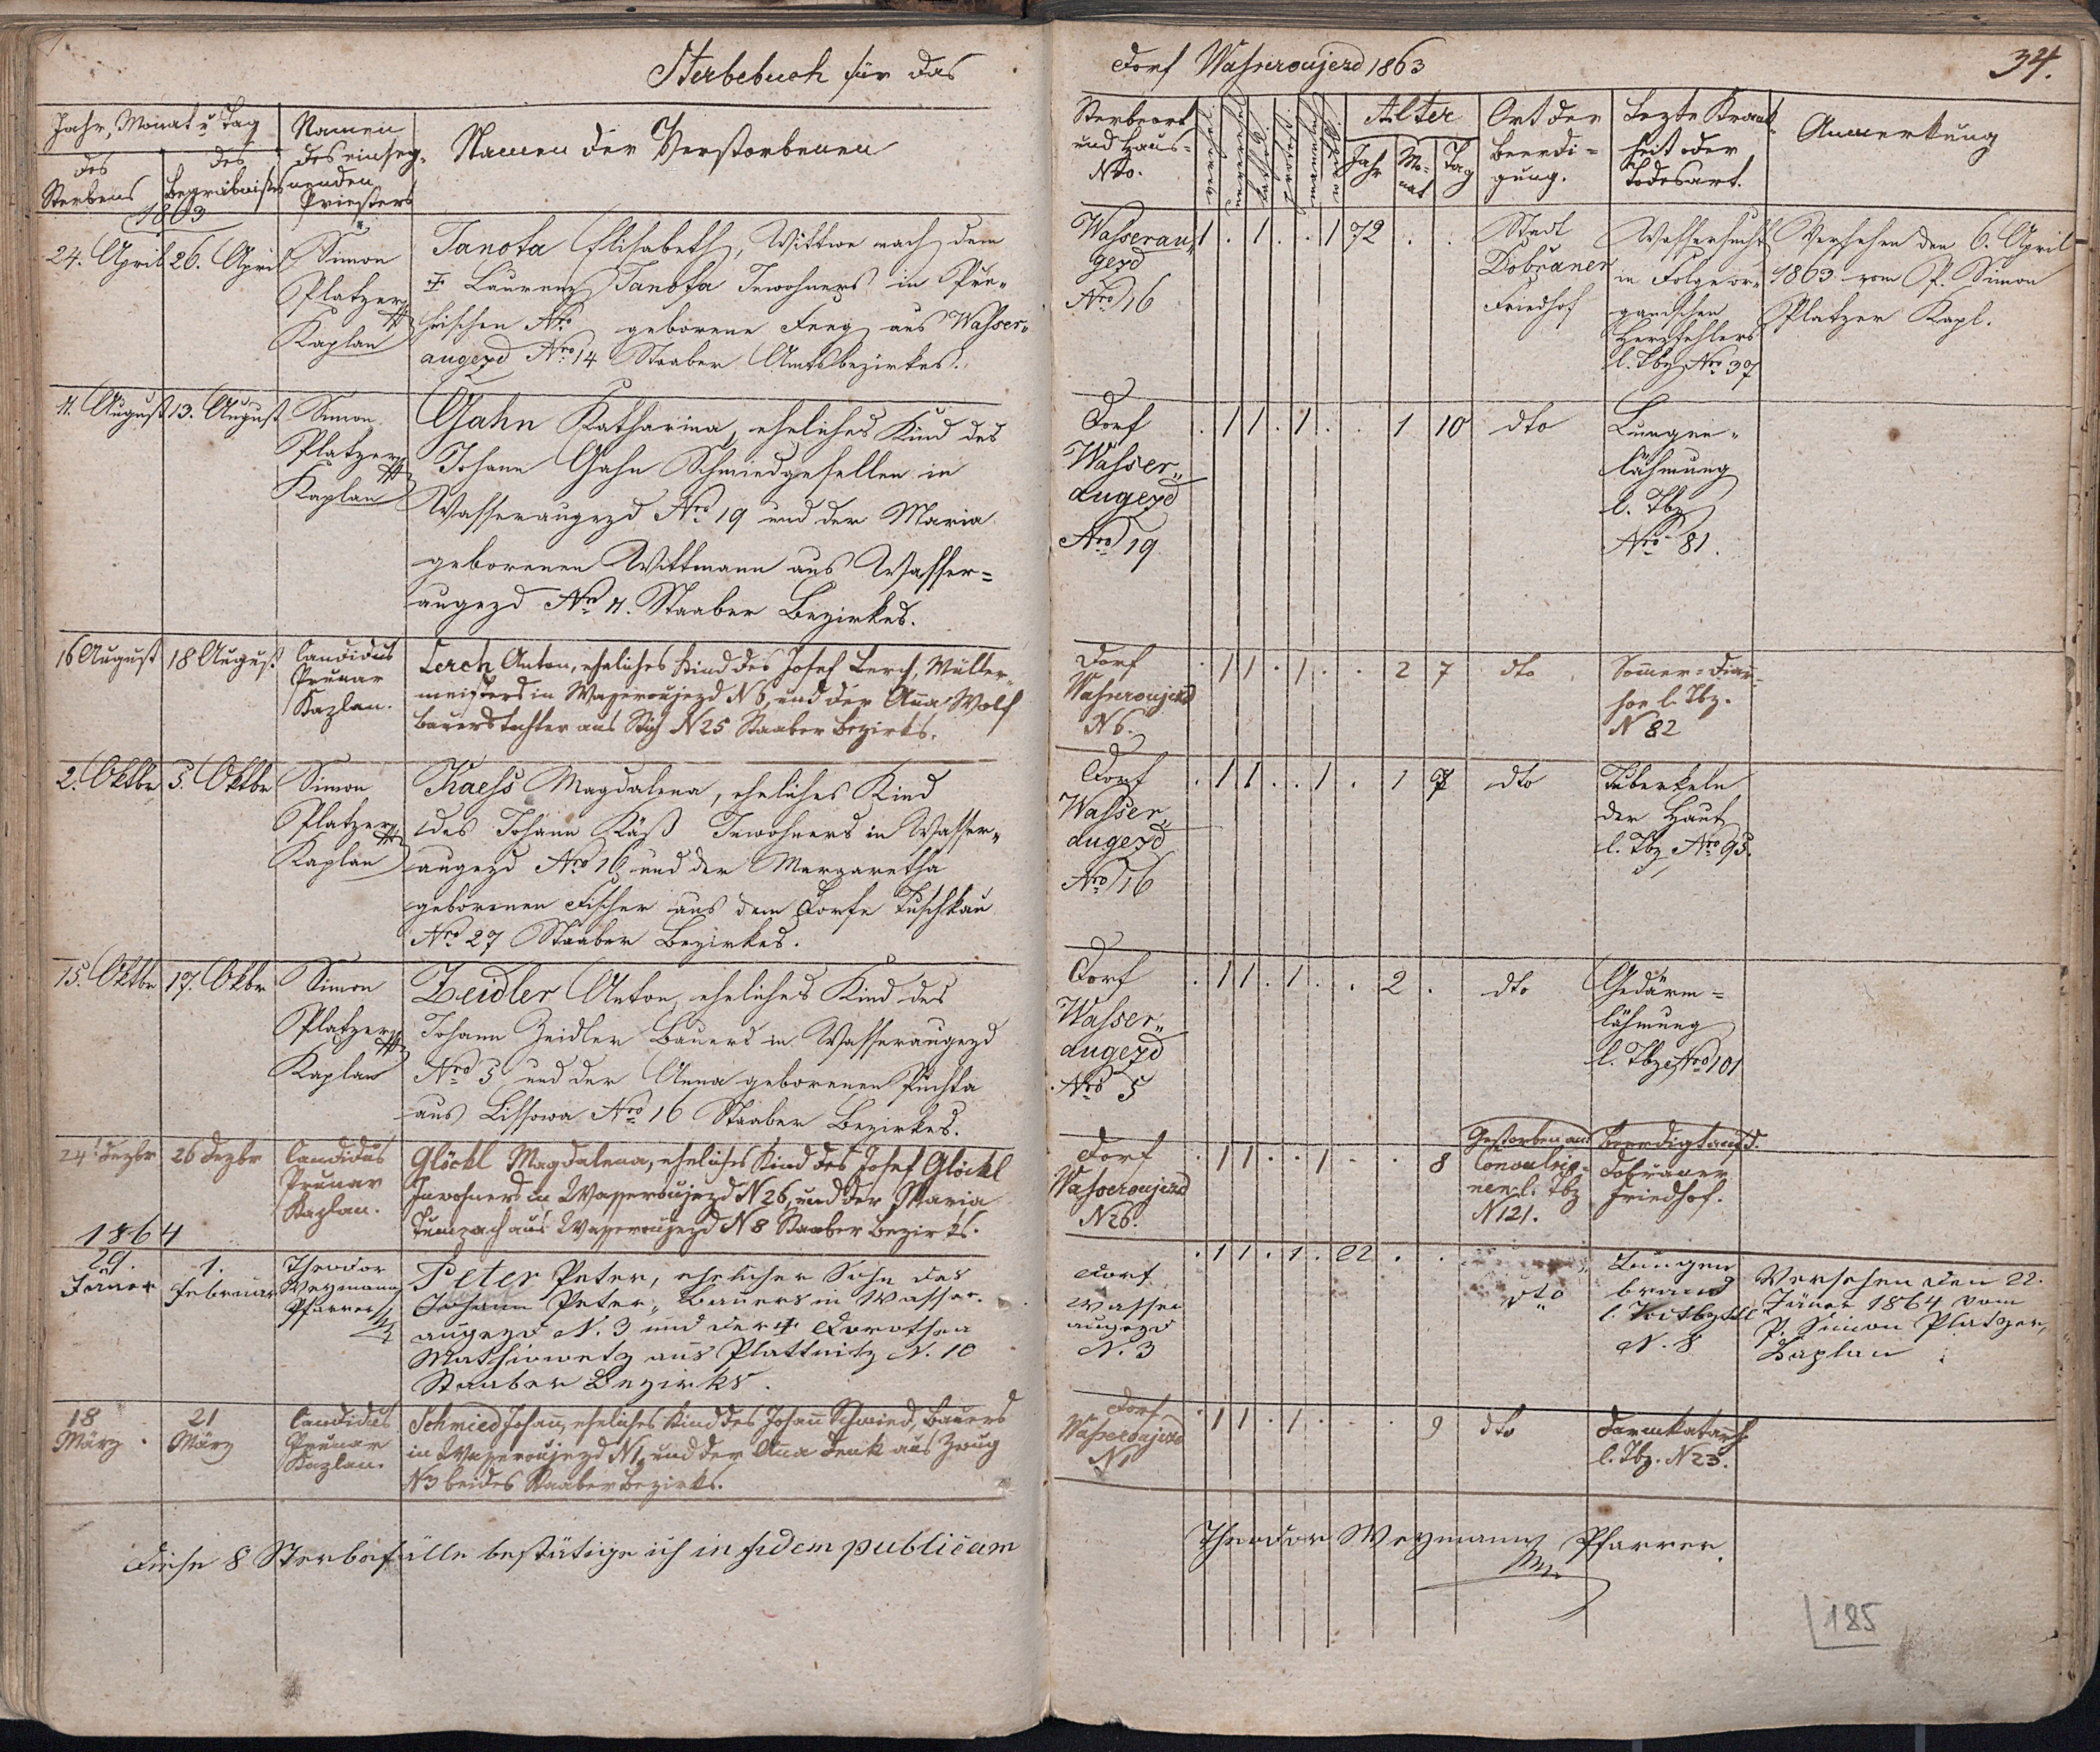 Sterbebuch für das
Dorf Wasseroujezd 1863
34.
Jahr, Monat u. Tag
des Sterbens
des Begräbnißes
Namen
des einseg-
nenden
Priesters
Namen der Verstorbenen
Sterbeort
und Haus-
Nro.
Alter
Jahr
Mo-
nat
Tag
Ort der
Beerdi-
gung.
Lezte Krank-
heit oder
Todesart.
Anmerkung
1863
24. April
26. April
Simon
Platzer
Kaplan
Janota Elisabeth, Wittwe nach dem
Laurenz Janota Inwohners in
Nro geborene aus Wasser„
augezd Nro 14 Staaber Amtsbezirkes.
Wasserau„
gezd
Nro 16
1 . 1 . . 1 72 . .
Stadt
Dobraner
Friedhof
Wassersucht
in Folge or„
ganischen
Herzfehlers
l. Tbz Nro 37
Versehen den 6. April
1863 vom P. Simon
Platzer Kapl.
11. August
13. August
Simon
Platzer
Kaplan
Gahn Katharina, eheliches Kind des
Johann Gahn Schmiedgesellen in
Wasseraugezd Nro 19 und der Maria
geborenen Wittmann aus Wasser=
augezd Nro 11. Staaber Bezirkes.
Dorf
Wasser„
augezd
Nro 19
. 1 1 . 1 . . 1 10
dto
Lungen„
lähmung
l. Tbz
Nro 81.
16 August
18 August
Candidus
Prunar
Kaplan.
Lerch Anton, eheliches Kind des Josef Lerch, Müller-
meisters in Wasseroujezd N 6, und der Anna Wolf
Bauerstochter aus Stich N 25 Staaber Bezirks.
Dorf
Wasseroujezd
N 6.
. 1 1 . 1 . . 2 7
dto
Sommer=Diar-
hoe l. Tbz.
N 82
2. Oktbr
5. Oktbr
Simon
Platzer
Kaplan
Kaess Magdalena, eheliches Kind
des Johann Käß Inwohners in Wasser„
augezd Nro 16 und der Margaretha
geborenen Fischer aus dem Dorfe Tuschkau
Nro 27 Staaber Bezirkes.
Dorf
Wasser„
augezd
Nro 16
. 1 1 . . 1 . 1
dto
Tuberkeln
der Haut
l. Tbz Nro 95.
15. Oktbr
17. Okbr
Simon
Platzer
Kaplan
Zeidler Anton, eheliches Kind des
Johann Zeidler Bauers in Wasseraugezd
Nro 5 und der Anna geborenen Puchta
aus Lissowa Nro 16 Staaber Bezirkes.
Dorf
Wasser„
augezd
Nro 5
. 1 1 . 1 . . 2 .
dto
Gedärm=
lähmung
l. Tbz Nro 101
24 Dezbr
26 Dezbr
Candidus
Prunar
Kaplan.
Glöckl Magdalena, eheliches Kind des Josef Glöckl
Inwohners in Wasseroujezd N 26, und der Maria
aus Wasseroujezd N 8 Staaber Bezirks.
Dorf
Wasseroujezd
N 26.
. 1 1 . . 1 . . 8
Gestorben an
Convulsio-
nen l. Tbz
N 121.
Beerdigt auf d.
Dobraner
Friedhof.
1864
29.
Jäner
1.
Februar
Theodor
Weymann
Pfarrer
Peter Peter, ehelicher Sohn des
Johann Peter, Bauers in Wasser-
augezd N. 3 und der Dorothea
Mathiowetz aus Plattnitz N. 10
Staaber Bezirks.
Dorf
Wasser
augezd
N. 3
. 1 1 . 1 . 22 . .
dto
Lungen
brand
N. 8
Versehen den 22.
Jäner 1864 vom
P. Simon Platzer,
Kaplan
18
März
21
März
Candidus
Prunar
Kaplan.
Schmied Johann, eheliches Kind des Johann Schmied, Bauers
in Wasseroujezd N 1, und der Anna Denk aus Zwug
N 3 beides Staaber Bezirks.
Dorf
Wasseroujezd
N 1
. 1 1 . 1 . . . 9
dto
Darmkatarrh
l. Tbz. N 23.
Diese 8 Sterbefälle bestätige ich in fidem publicam
Theodor Weymann Pfarrer.
185